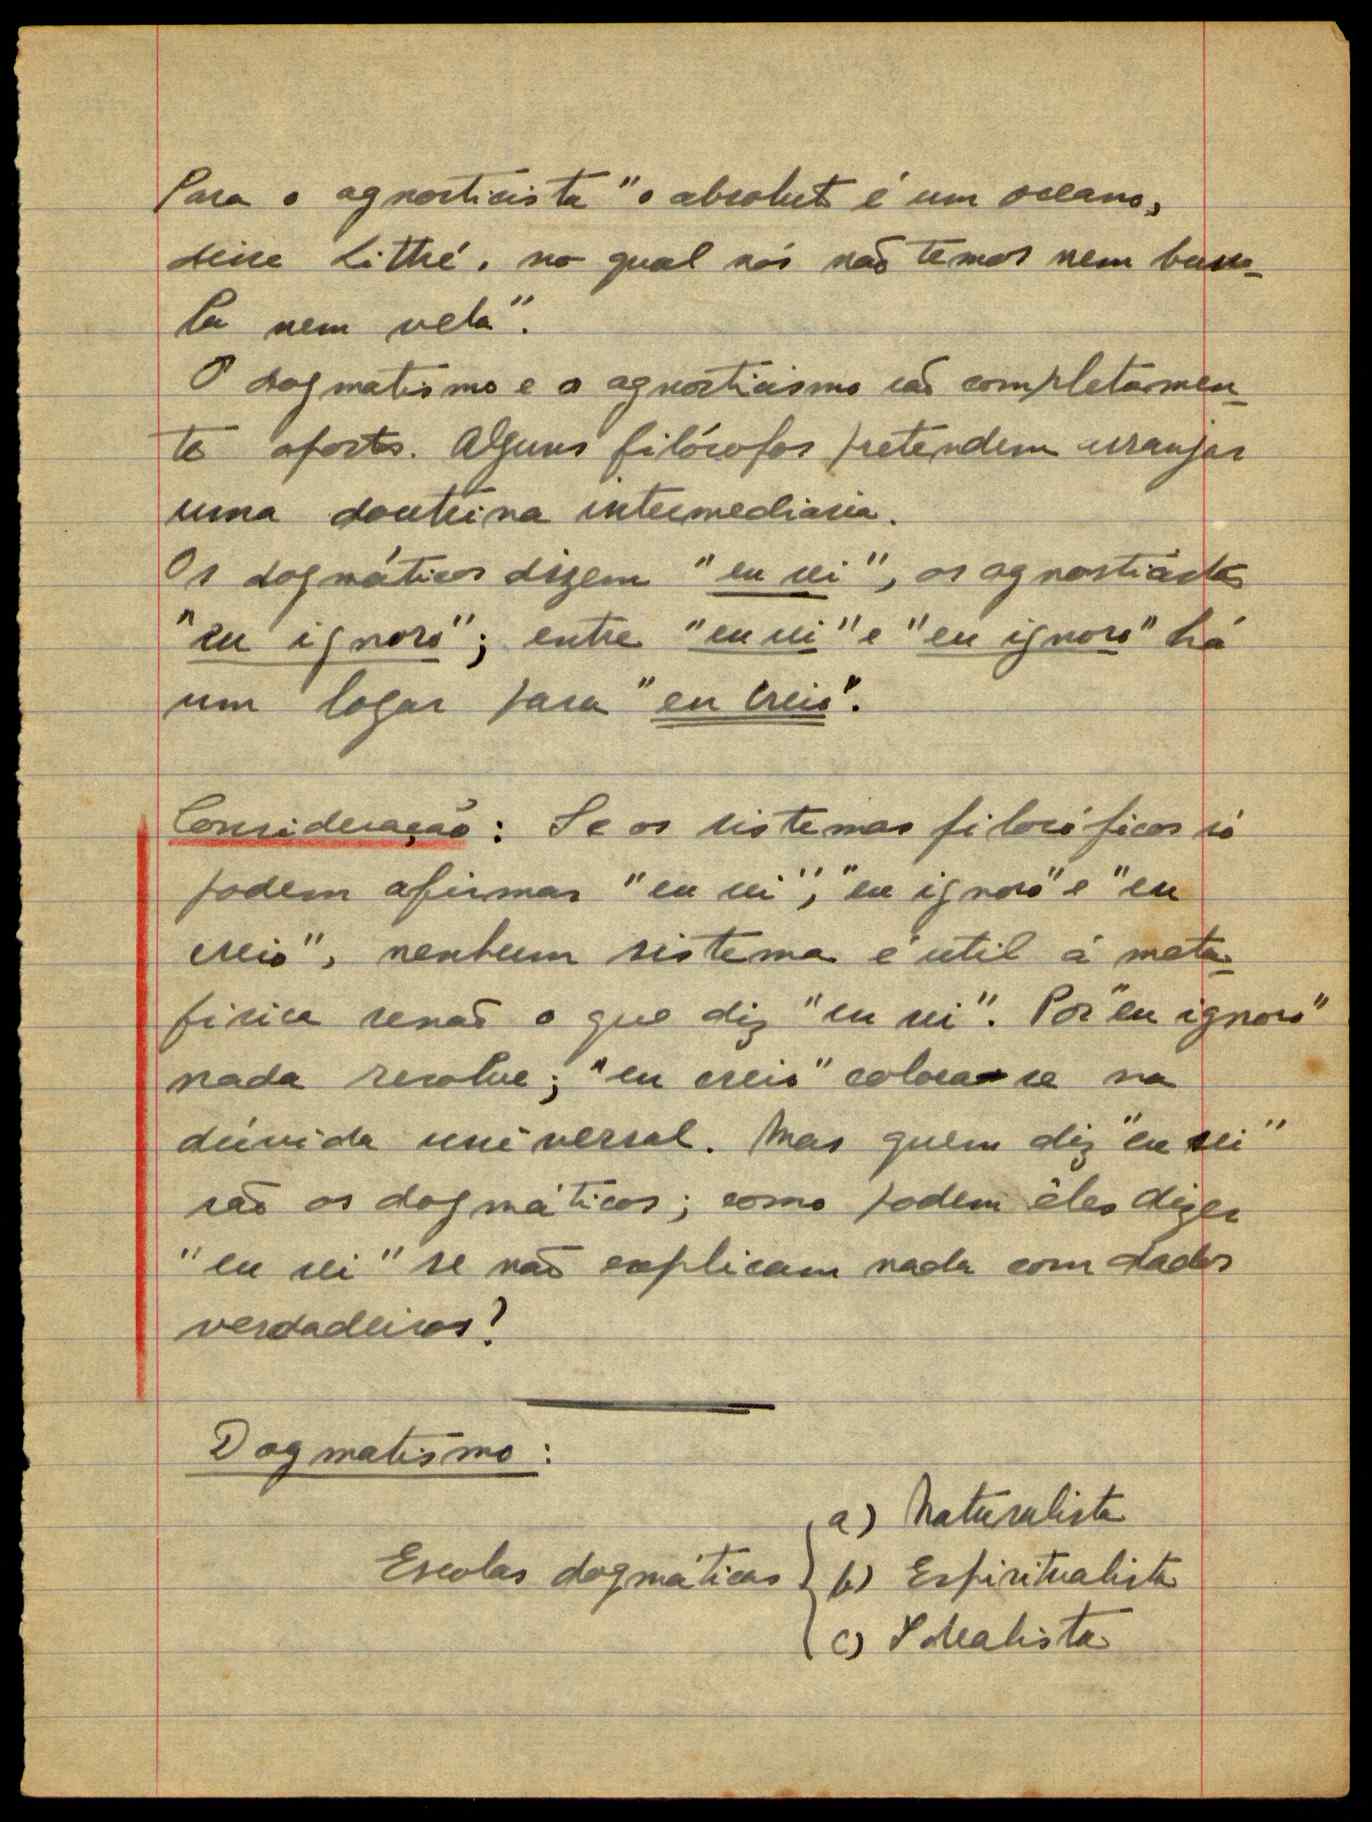 Para o agnosticista "o absoluto é um oceano,
disse Littré, no qual nós não temos nem busso-
la nem vela".
O dogmatismo e o agnosticismo são completamen-
te opostos. Alguns filósofos pretendem arranjar
uma doutrina intermediaria.
Os dogmáticos dizem "eu sei", os agnosticistas
"eu ignoro"; entre "eu sei" e "eu ignoro" há
um logar para "eu creio".
Consideração: Se os sistemas filosóficos só
podem afirmar "eu sei", "eu ignoro" e "eu
creio", nenhum sistema é util á meta-
fisica senão o que diz "eu sei". Por "eu ignoro"
nada resolve; "eu creio" coloca-se na
dúvida universal. Mas quem diz "eu sei"
são os dogmáticos; como podem êles dizer
"eu sei" se não explicam nada com dados
verdadeiros?
Dogmatismo:
a) Naturalista
Escolas dogmáticas { b) Espiritualista
c) Idealista